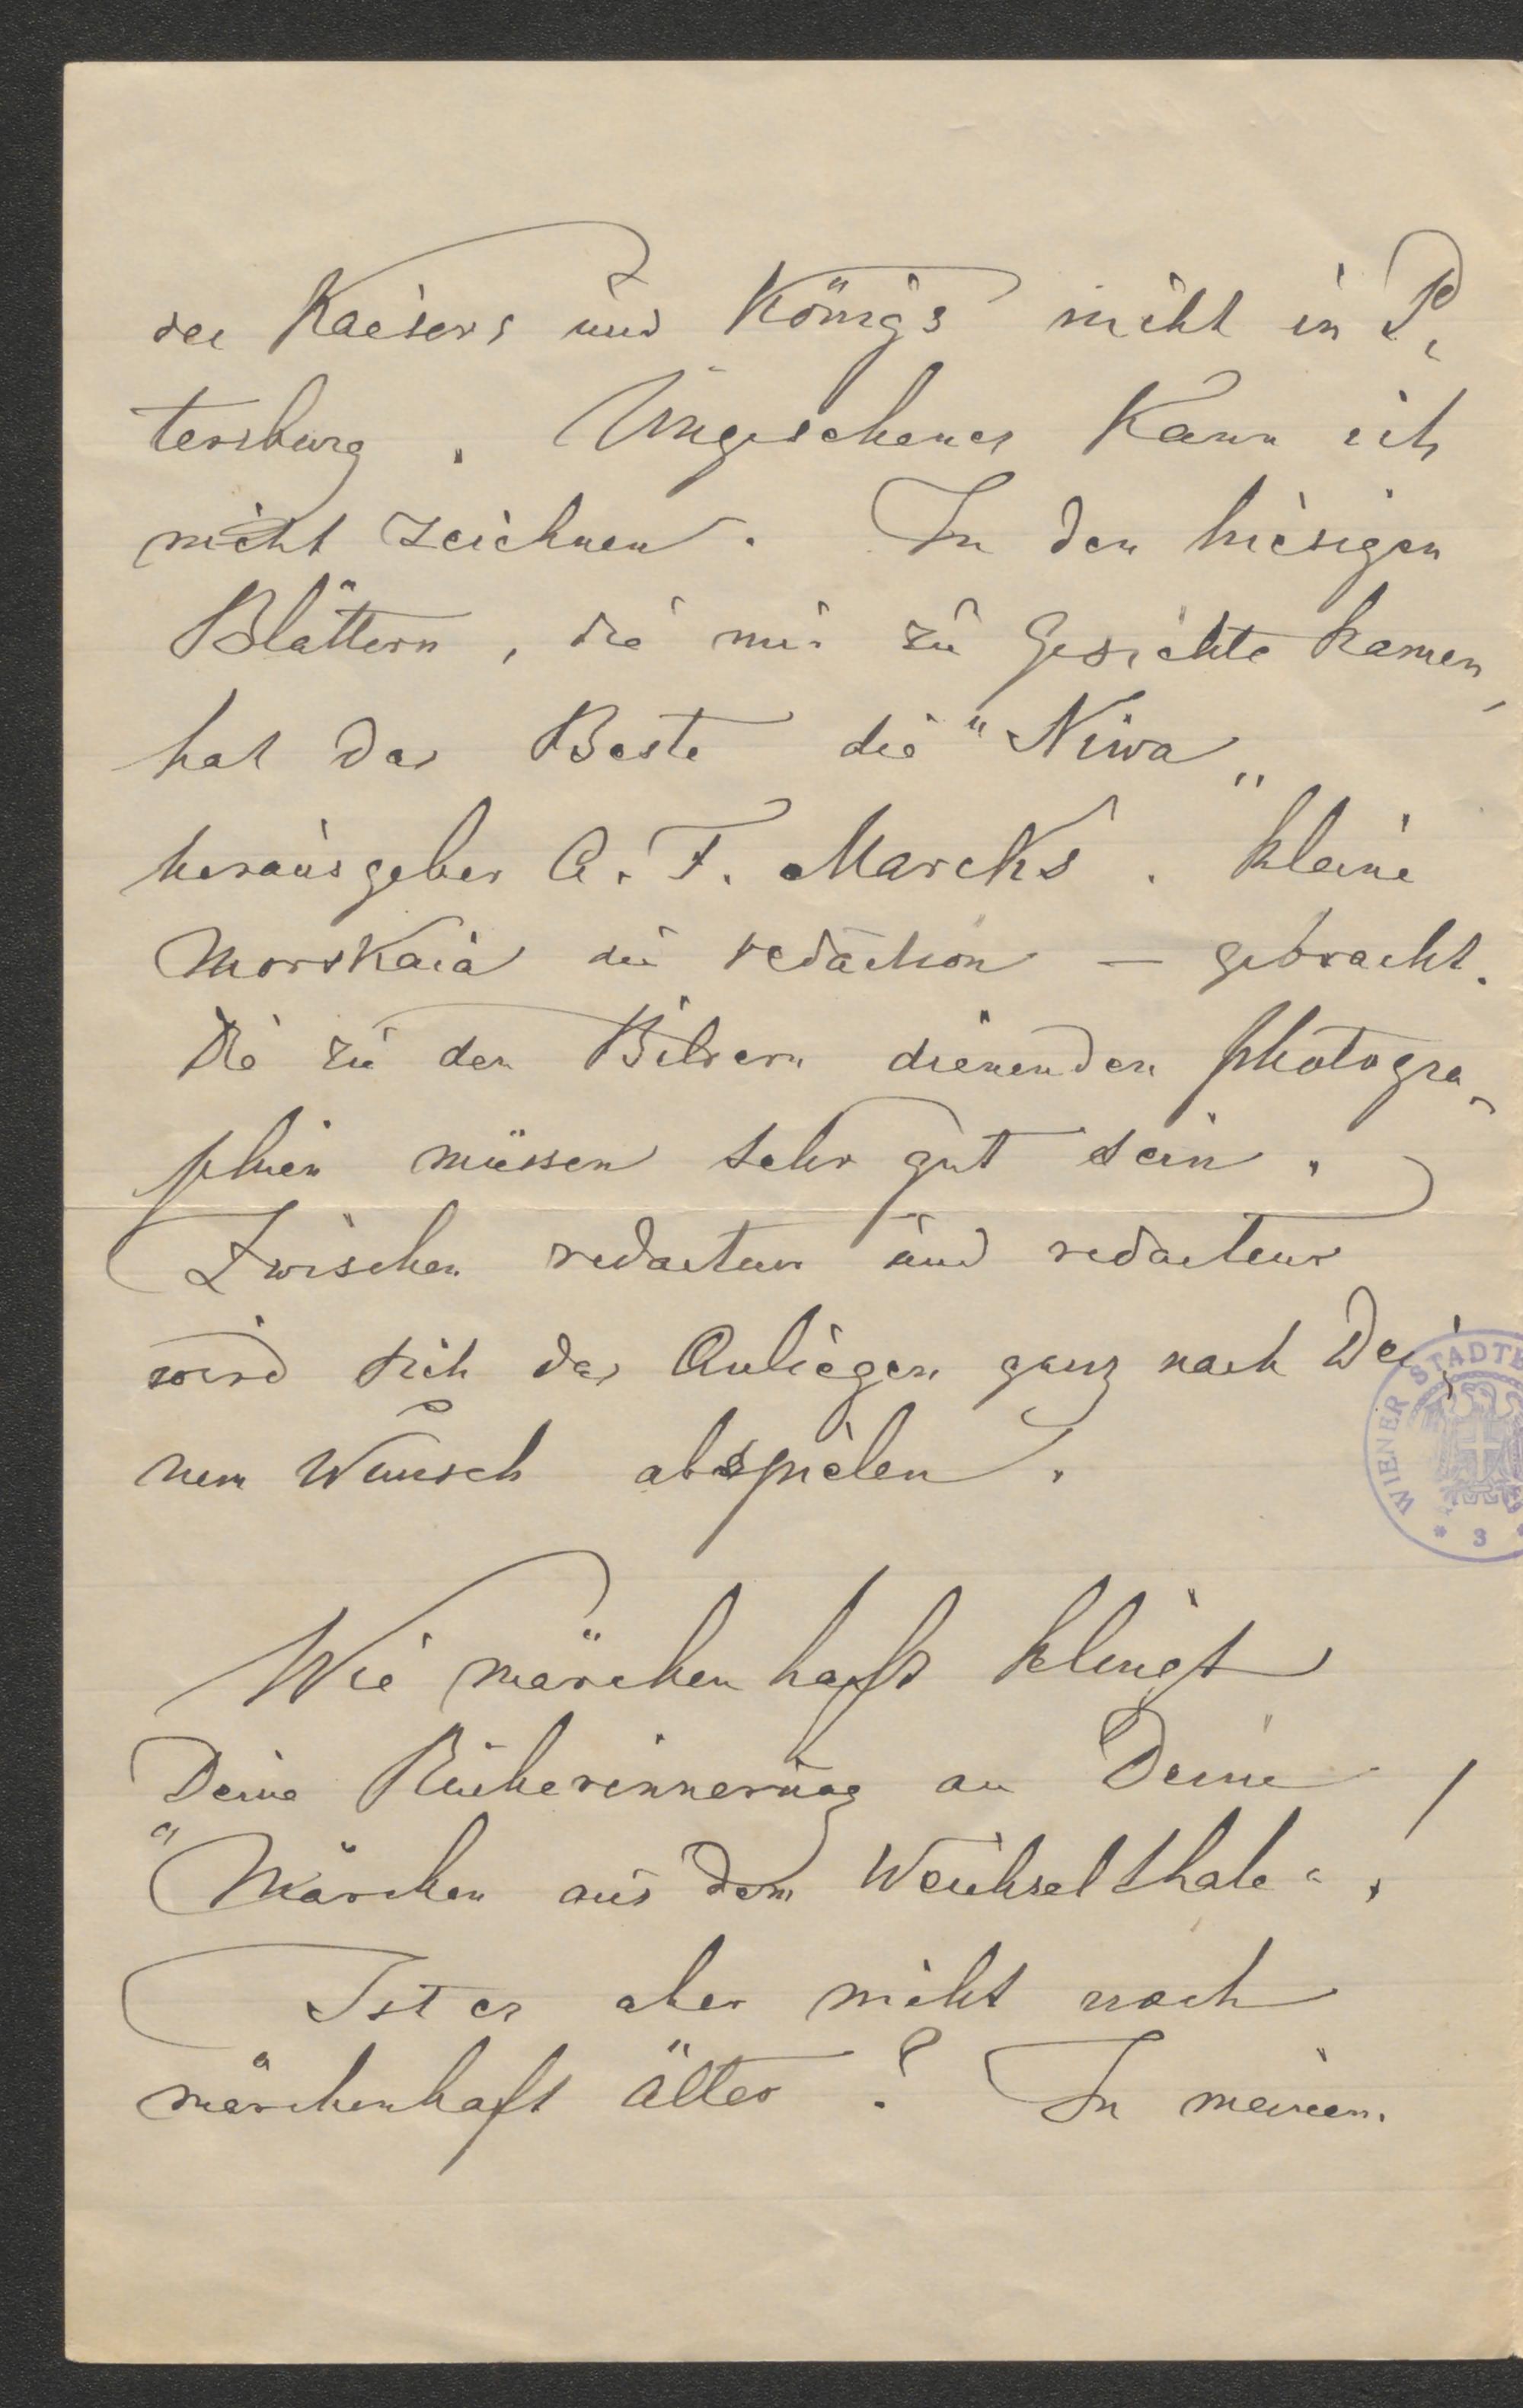 des Kaisers und Königs nicht in Pe-
tersburg. Ungesehenes kann ich
nicht zeichnen. In den hiesigen
Blättern, die mir zu Gesichte kamen,
hat das Beste die "Niwa„
herausgeber A. F. Marcks. kleine
Morskaia die redaction — gebracht.
Die zu den Bildern dienenden photogra-
phien müssen sehr gut sein.
Zwischen redacteur und redacteur
wird sich das Anliegen ganz nach Dei-
nem Wunsch abspielen.
Wie märchenhaft klingt
Deine Rückerinnerung an Deine
"Märchen aus dem Weichselthale".
Ist es aber nicht noch
märchenhaft älter? In meinem
WIENER STADTB
* 3 *